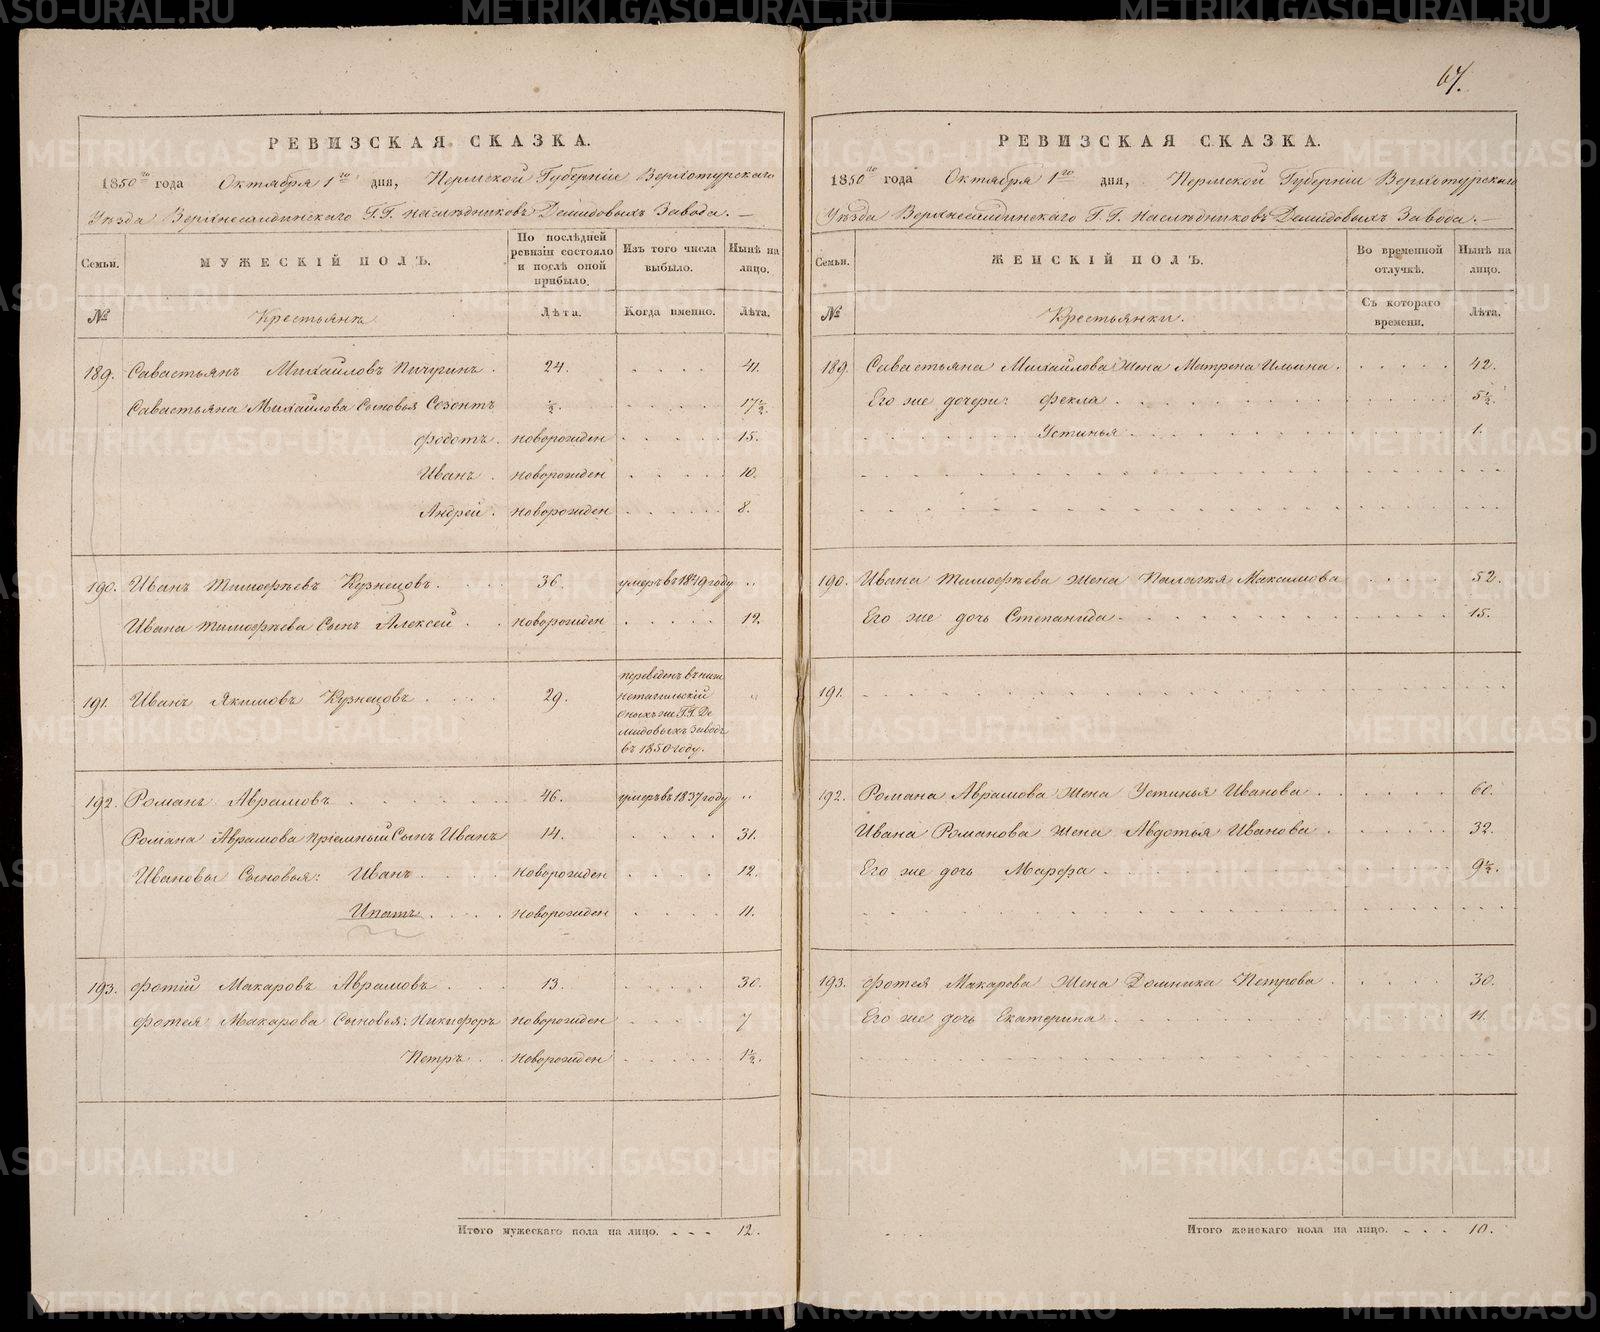 67.
РЕВИЗСКАЯ СКАЗКА.
1850го года Октября 1го дня, Пермской Губернiи Верхотурскаго
Уѣзда Верхнесалдинскаго Г.Г. наслѣдниковъ Демидовыхъ Завода. —
Семьи. МУЖЕСКIЙ ПОЛЪ. По послѣдней ревизiи состояло и послѣ оной прибыло. Изъ того числа выбыло. Нынѣ на лицо.
№ Крестьянъ Лѣта. Когда именно. Лѣта.
189. Савастьянъ Михайловъ Пичугинъ. 24. 41.
Савастьяна Михайлова Сыновья Созонтъ ½. 17½.
Федотъ. новорожден 15.
Иванъ. новорожден 10.
Андрей. новорожден 8.
190. Иванъ Тимофѣевъ Кузнецовъ. 36. умеръ въ 1849 году "
Ивана Тимофѣева Сынъ Алексей. новорожден 12.
191. Иванъ Якимовъ Кузнецовъ 29. переведенъ въ ниж
нетагильскiй
оныхъ же Г.Г. Де
мидовыхъ Заводъ
въ 1850 году. "
192. Романъ Аврамовъ 46. умеръ въ 1837 году "
Романа Аврамова прiемный Сынъ Иванъ 14. 31.
Ивановы Сыновья: Иванъ новорожден 12.
Ипатъ новорожден 11.
193. Фотiй Макаровъ Аврамовъ 13. 30.
Фотея Макарова Сыновья: Никифоръ новорожден 7
Петръ новорожден 1½.
Итого мужескаго пола на лицо. 12.
РЕВИЗСКАЯ СКАЗКА.
1850го года Октября 1го дня, Пермской Губернiи Верхотурскаго
Уѣзда Верхнесалдинскаго Г.Г. наслѣдниковъ Демидовыхъ Завода. —
Семьи. ЖЕНСКIЙ ПОЛЪ. Во временной отлучкѣ. Нынѣ на лицо.
№ Крестьянки. Съ котораго времени. Лѣта.
189. Савастьяна Михайлова Жена Матрена Ильина. 42.
Его же дочери: Фекла 5½.
Устинья 1.
190. Ивана Тимофѣева Жена Палагея Максимова 52.
Его же дочь Степанида 15.
191.
192. Романа Аврамова Жена Устинья Иванова 60.
Ивана Романова Жена Авдотья Иванова 32.
Его же дочь Марфа 9½.
193. Фотея Макарова Жена Домника Петрова 30.
Его же дочь Екатерина 11.
Итого женскаго пола на лицо. 10.
METRIKI.GASO-URAL.RU